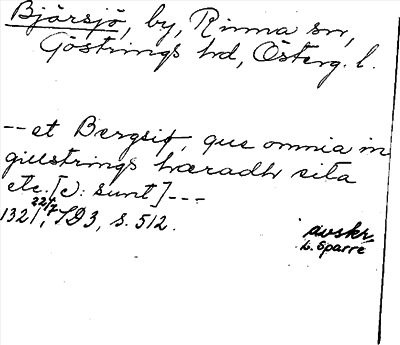 Bjärsjö, by, Rinna sn,
Göstrings hd, Österg. l.
-- et Bergsiø, que omnia in
giustrings hæradh sita
etc. [ɔ: sunt] ---
1321 22/7, SD3, s. 512.
avskr.
L. Sparre